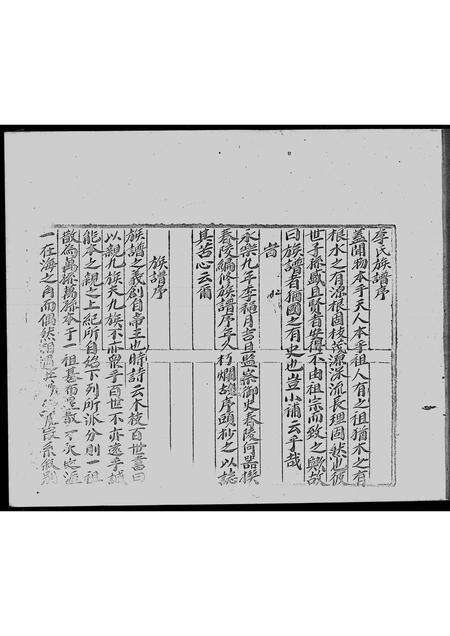 李氏族譜序
蓋聞物本乎天人本乎祖人有之祖猶木之有
根水之有源根固枝茂源深流長理固然也彼
世子孫盛且賢者安得不由祖宗而致之歟故
曰族譜者猶國之有史也豈小補云乎哉
旹
永樂九年季穐月吉旦監察御史舂陵何器撰
舂陵編修族譜序立人朽爛故序頭抄之以誌
其苦心云爾
族譜序
族譜之義創自帝王也時詩云本枝百世書曰
以親九族夫九族不亦眾乎百世不亦遠乎誠
能本之親之上紀所自始下列所派分則一祖
散為萬孫萬孫本于一祖甚
一在海之角而偶然相遇